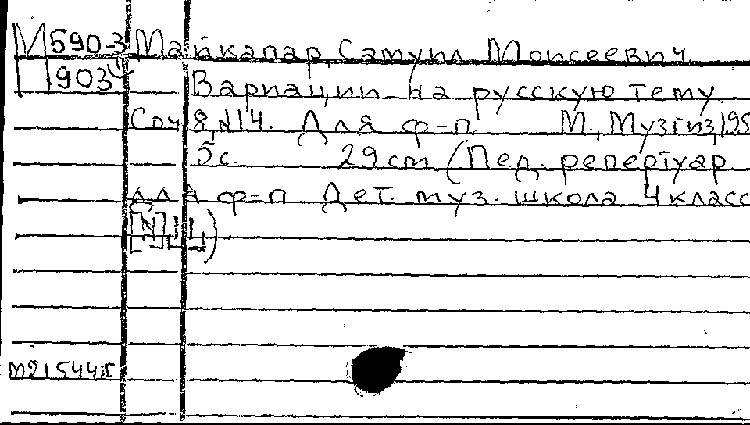 М590-3 Майкапар, Самуил Моисеевич
П903 Вариации на русскую тему
Соч 8, №14. Для ф-п М., Музгиз, 195
5с. 29 cm (Пед. репертуар
для ф-п Дет. муз. школа 4 класс
)